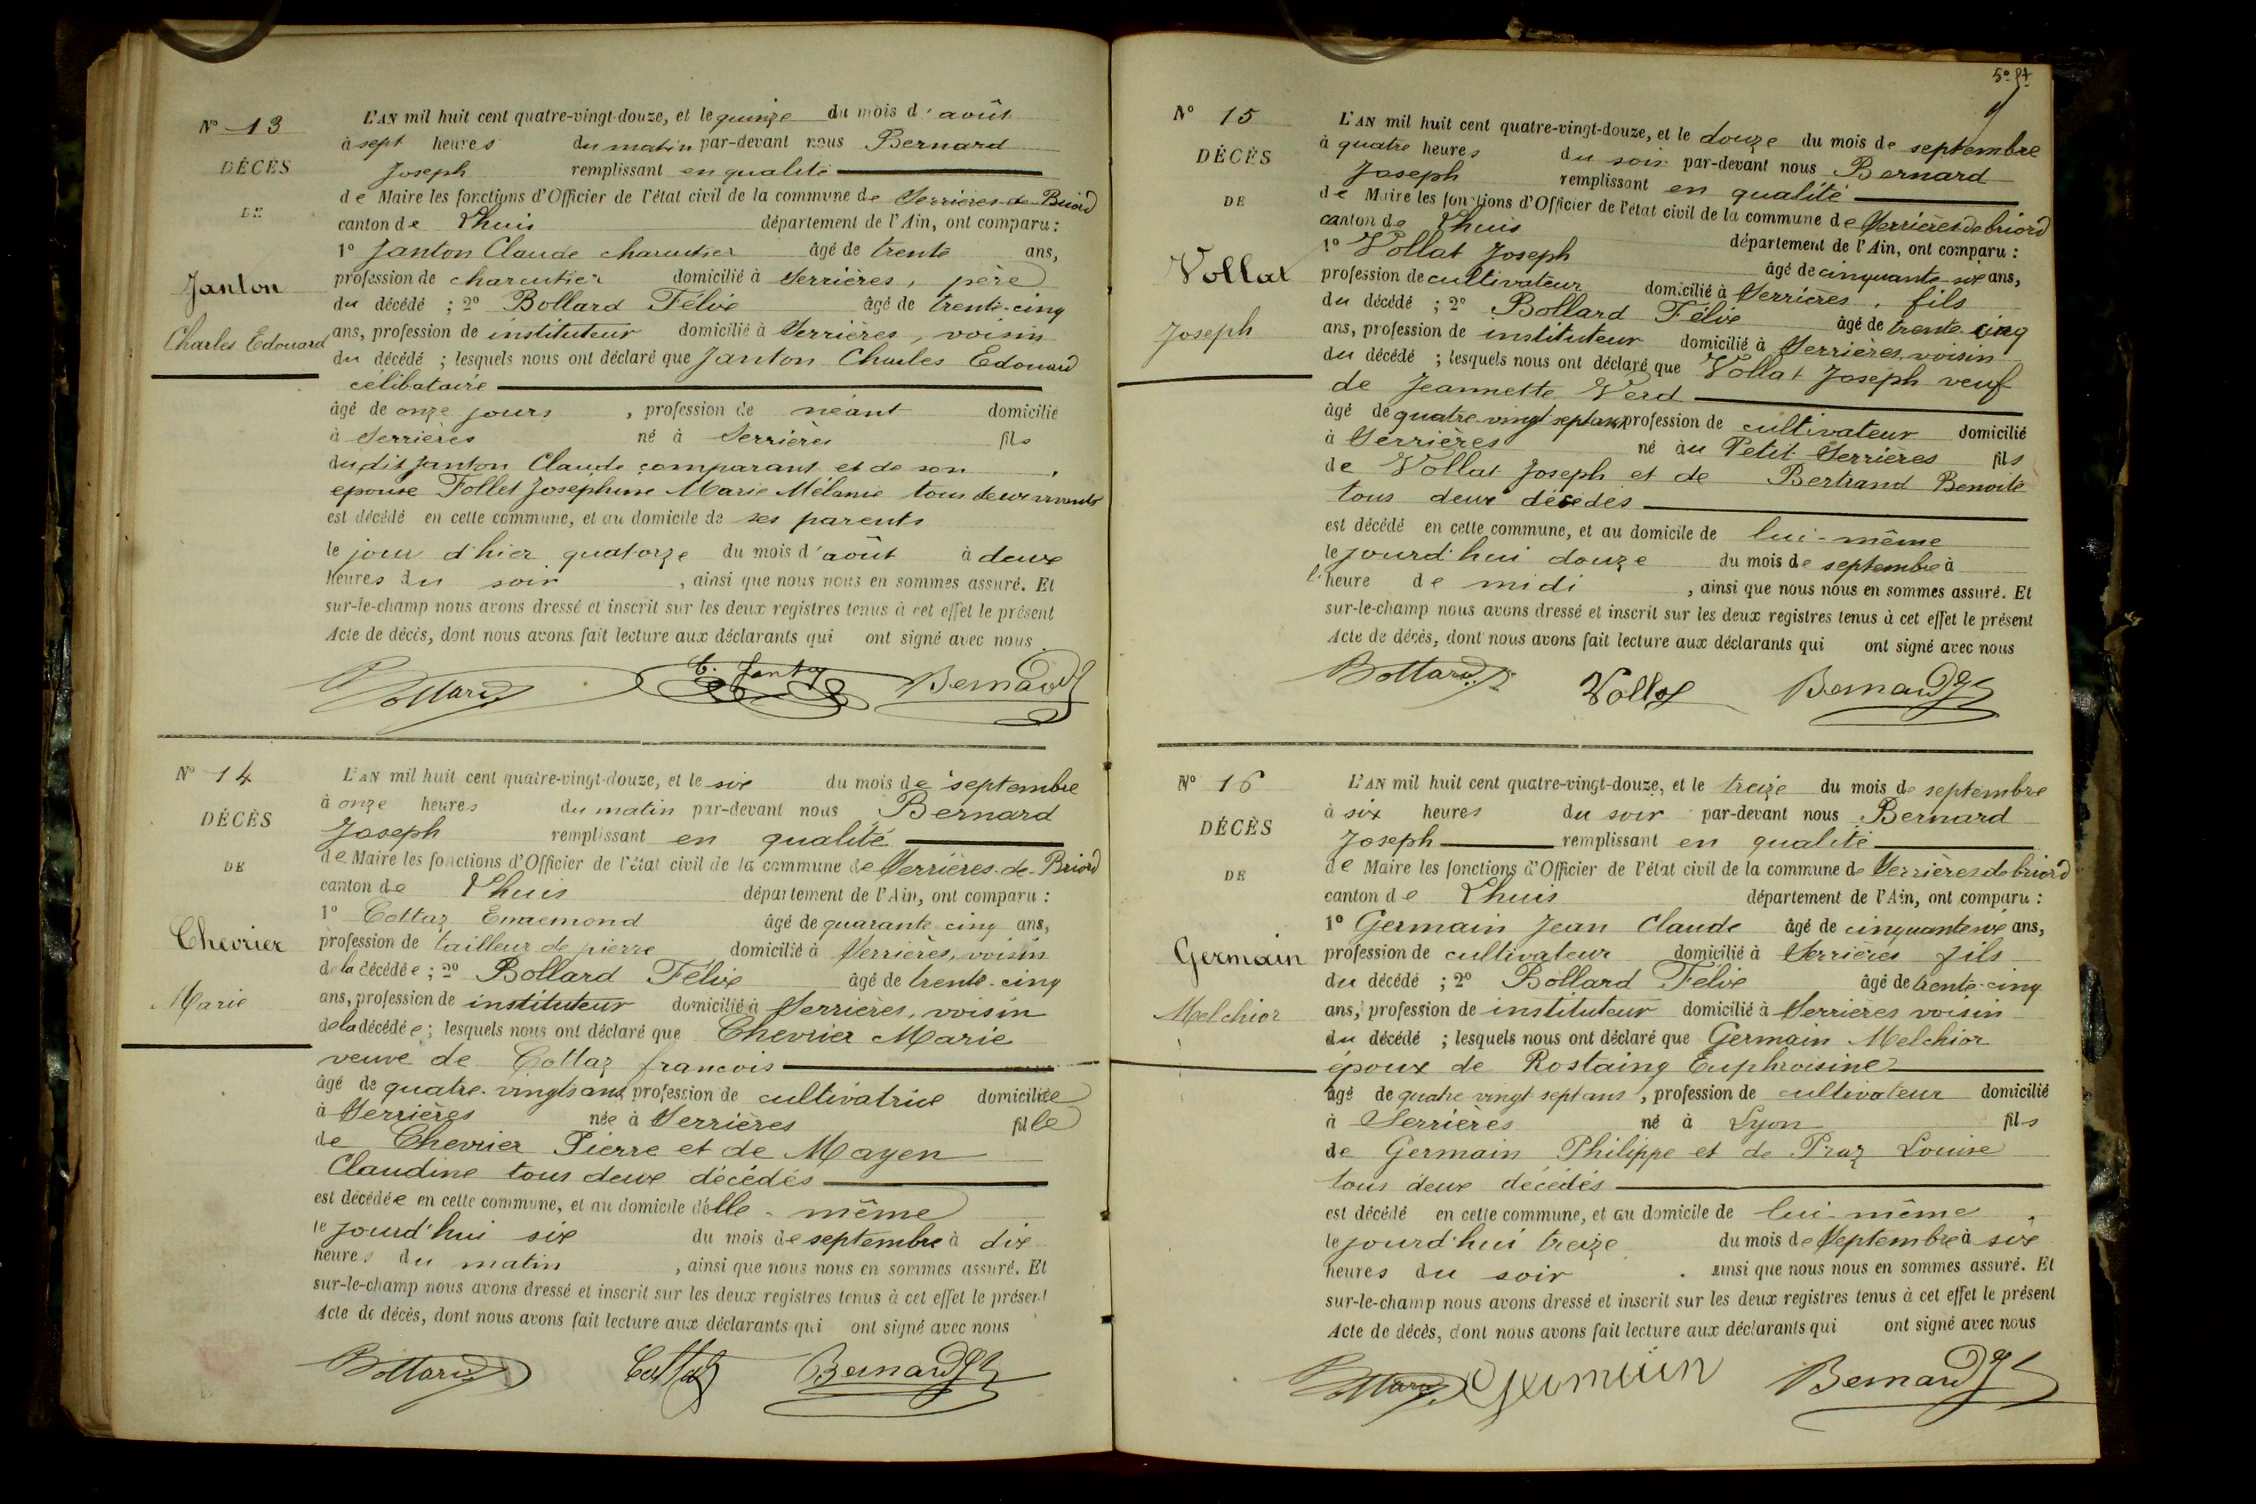 Nº 13
DÉCÈS
DE
Janton
Charles Edouard
L'AN mil huit cent quatre-vingt-douze, et le quinze du mois d'août
à sept heures du matin par-devant nous Bernard
Joseph remplissant en qualité
de Maire les fonctions d'Officier de l'état civil de la commune de Serrières-de-Briord
canton de Lhuis département de l'Ain, ont comparu :
1º Janton Claude charcutier âgé de trente ans,
profession de charcutier domicilié à Serrières, père
du décédé ; 2º Bollard Félix âgé de trente-cinq
ans, profession de instituteur domicilié à Serrières, voisin
du décédé ; lesquels nous ont déclaré que Janton Charles Edouard
célibataire
âgé de onze jours, profession de néant domicilié
à Serrières né à Serrières fils
du dit Janton Claude comparant et de son
épouse Follet Josephine Marie Mélanie tous deux vivants
est décédé en cette commune, et au domicile de ses parents
le jour d'hier quatorze du mois d'août à deux
heures du soir, ainsi que nous nous en sommes assuré. Et
sur-le-champ nous avons dressé et inscrit sur les deux registres tenus à cet effet le présent
Acte de décès, dont nous avons fait lecture aux déclarants qui ont signé avec nous
Bollard Bernard
Nº 14
DÉCÈS
DE
Chevrier
Marie
L'AN mil huit cent quatre-vingt-douze, et le six du mois de septembre
à onze heures du matin par-devant nous Bernard
Joseph remplissant en qualité
de Maire les fonctions d'Officier de l'état civil de la commune de Serrières-de-Briord
canton de Lhuis département de l'Ain, ont comparu :
1º Cottaz âgé de quarante cinq ans,
profession de tailleur de pierre domicilié à Serrières, voisin
de la décédée ; 2º Bollard Félix âgé de trente-cinq
ans, profession de instituteur domicilié à Serrières, voisin
de la décédée ; lesquels nous ont déclaré que Chevrier Marie
veuve de Cottaz francois
âgé de quatre-vingts ans, profession de cultivatrice domiciliée
à Serrières née à Serrières fille
de Chevrier Pierre et de Mayen
Claudine tous deux décédés
est décédée en cette commune, et au domicile d'elle-même
le jourd'hui six du mois de septembre à dix
heures du matin, ainsi que nous nous en sommes assuré. Et
sur-le-champ nous avons dressé et inscrit sur les deux registres tenus à cet effet le présent
Acte de décès, dont nous avons fait lecture aux déclarants qui ont signé avec nous
Bollard Cottaz Bernard
Nº 15
DÉCÈS
DE
Vollat
Joseph
L'AN mil huit cent quatre-vingt-douze, et le douze du mois de septembre
à quatre heures du soir par-devant nous Bernard
Joseph remplissant en qualité
de Maire les fonctions d'Officier de l'état civil de la commune de Serrières de briord
canton de Lhuis département de l'Ain, ont comparu :
1º Vollat Joseph âgé de cinquante six ans,
profession de cultivateur domicilié à Serrières, fils
du décédé ; 2º Bollard Félix âgé de trente cinq
ans, profession de instituteur domicilié à Serrières, voisin
du décédé ; lesquels nous ont déclaré que Vollat Joseph veuf
de Jeannette Verd
âgé de quatre-vingt sept ans, profession de cultivateur domicilié
à Serrières né au Petit Serrières fils
de Vollat Joseph et de Bertrand Benoîte
tous deux décédés
est décédé en cette commune, et au domicile de lui-même
le jourd'hui douze du mois de septembre à
l'heure de midi, ainsi que nous nous en sommes assuré. Et
sur-le-champ nous avons dressé et inscrit sur les deux registres tenus à cet effet le présent
Acte de décès, dont nous avons fait lecture aux déclarants qui ont signé avec nous
Bollard Vollat Bernard
Nº 16
DÉCÈS
DE
Germain
Melchior
L'AN mil huit cent quatre-vingt-douze, et le treize du mois de septembre
à six heures du soir par-devant nous Bernard
Joseph remplissant en qualité
de Maire les fonctions d'Officier de l'état civil de la commune de Serrières de briord
canton de Lhuis département de l'Ain, ont comparu :
1º Germain Jean Claude âgé de cinquante six ans,
profession de cultivateur domicilié à Serrières fils
du décédé ; 2º Bollard Félix âgé de trente-cinq
ans, profession de instituteur domicilié à Serrières voisin
du décédé ; lesquels nous ont déclaré que Germain Melchior
époux de Rostaing Euphroisine
âgé de quatre vingt sept ans, profession de cultivateur domicilié
à Serrières né à Lyon fils
de Germain Philippe et de Praz Louise
tous deux décédés
est décédé en cette commune, et au domicile de lui-même
le jourd'hui treize du mois de Septembre à six
heures du soir. ainsi que nous nous en sommes assuré. Et
sur-le-champ nous avons dressé et inscrit sur les deux registres tenus à cet effet le présent
Acte de décès, dont nous avons fait lecture aux déclarants qui ont signé avec nous
Bollard Germain Bernard